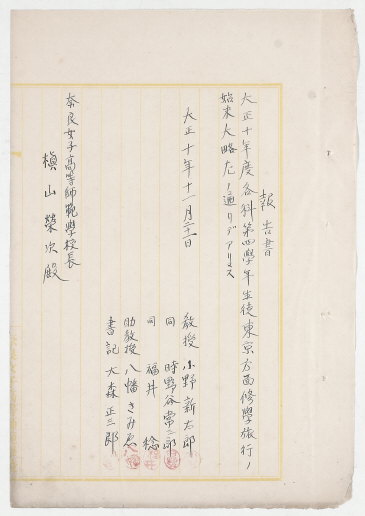 報告書
大正十年度各科第四學年生徒東京方面修學旅行ノ
始末大略左ノ通リデアリマス
大正十年十一月三十一日
教授 小野新太郎
同 時野谷常三郎
同 福井稔
助教授 八幡さみゑ
書記 大森正三郎
奈良女子高等師範學校長
槇山榮次殿